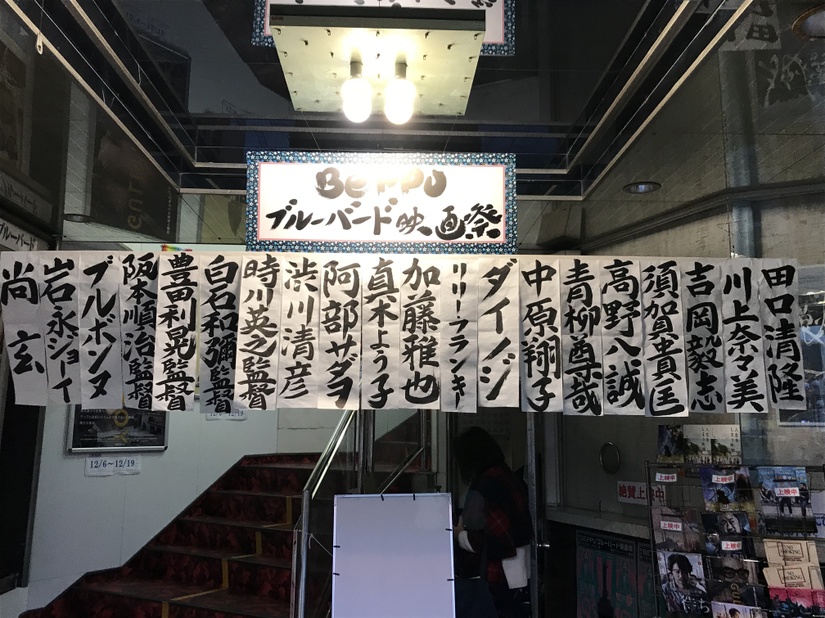 BePPU
ブルーバード映画祭
田口清隆
川上奈々美
吉岡毅志
須賀貴匡
高野八誠
青柳尊哉
中原翔子
ダイノジ
リリー・フランキー
加藤雅也
真木よう子
阿部サダヲ
渋川清彦
時川英之監督
白石和彌監督
豊田利晃監督
阪本順治監督
ブルボンヌ
岩永ジョーイ
尚玄
12/6～12/19
絶賛上映中
上映中
上映中
上映中
上映中
上映中